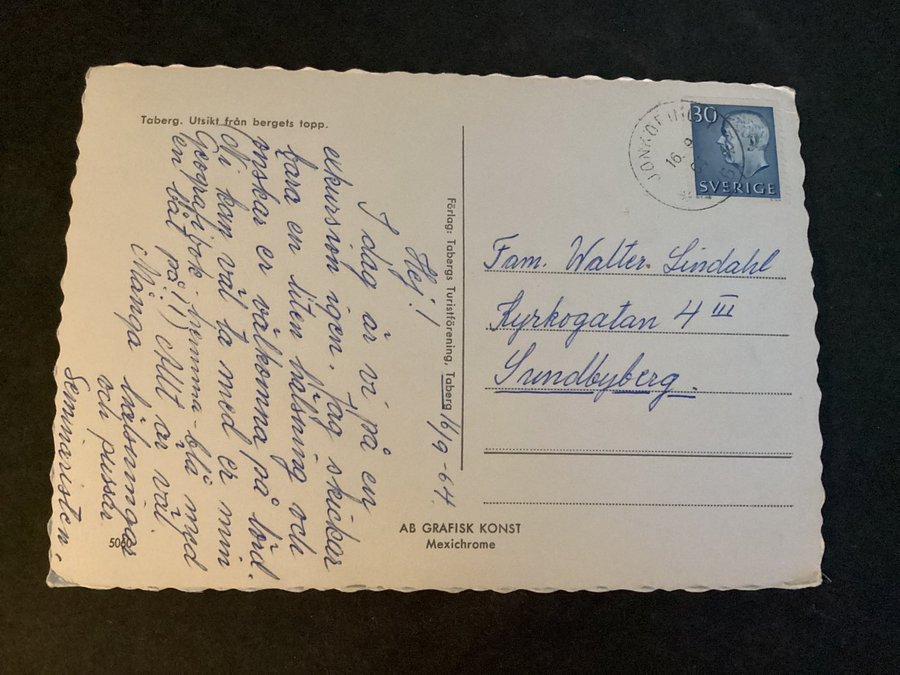 Taberg. Utsikt från bergets topp.
16/9-64.
Hej!
I dag är vi på en
exkursion igen. Jag skickar
bara en liten hälsning och
önskar er välkomna på lörd.
Ni kan väl ta med er min
Geografibok hemma - blå med
en båt på(!) Allt är väl.
Många
hälsningar
och pussar
Seminaristen.
Förlag: Tabergs Turistförening, Taberg
5060
AB GRAFISK KONST
Mexichrome
JÖNKÖPING
16.9
30
SVERIGE
Fam. Walter Lindahl
Kyrkogatan 4 III
Sundbyberg.